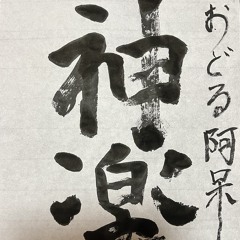 おどる阿呆
神楽